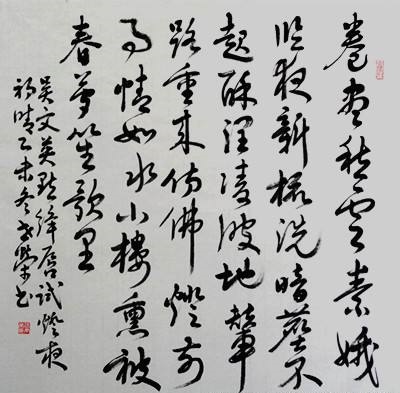 卷尽愁云素娥
临夜新梳洗暗塵不
起酥润凌波地輦
路重来仿佛燈前
事情如水小樓熏被
春梦笙歌里
吴文英點绛唇试燈夜
初晴乙未冬書